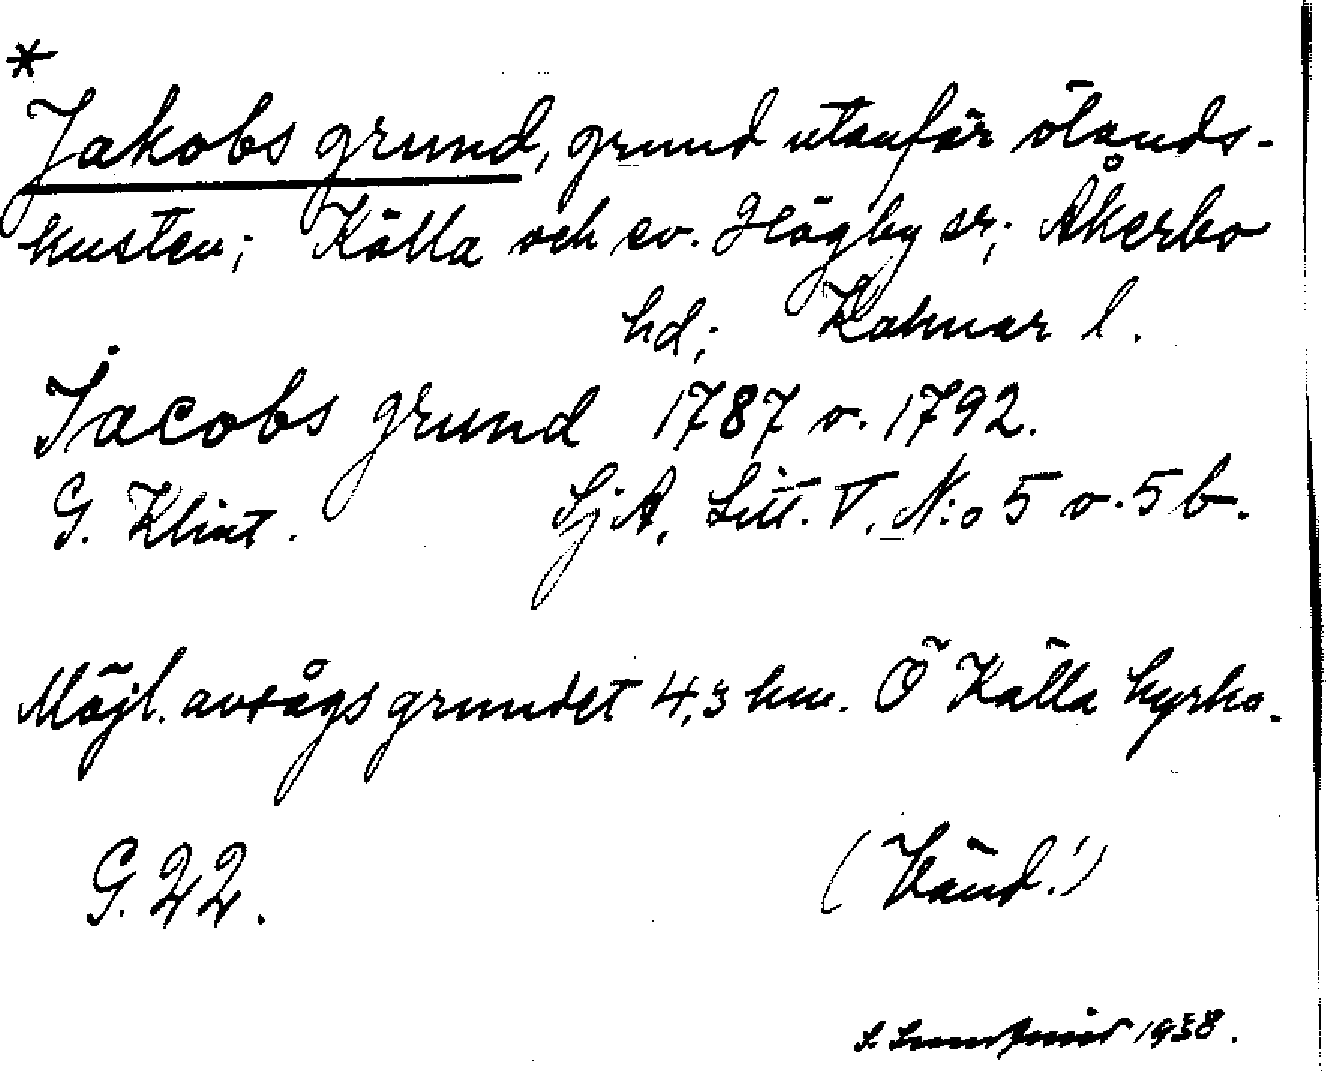 *
Jakobs grund, grund utanför ölands-
kusten; Källa och ev. Högby sr; Åkerbo
hd; Kalmar l.
Jacobs grund 1787 o. 1792.
G. Klint. SjA, Litt. V, N:o 5 o. 5 b.
Möjl. avsågs grundet 4,3 km. Ö Källa kyrka.
G. 22.
(Vänd!)
S. 1938.